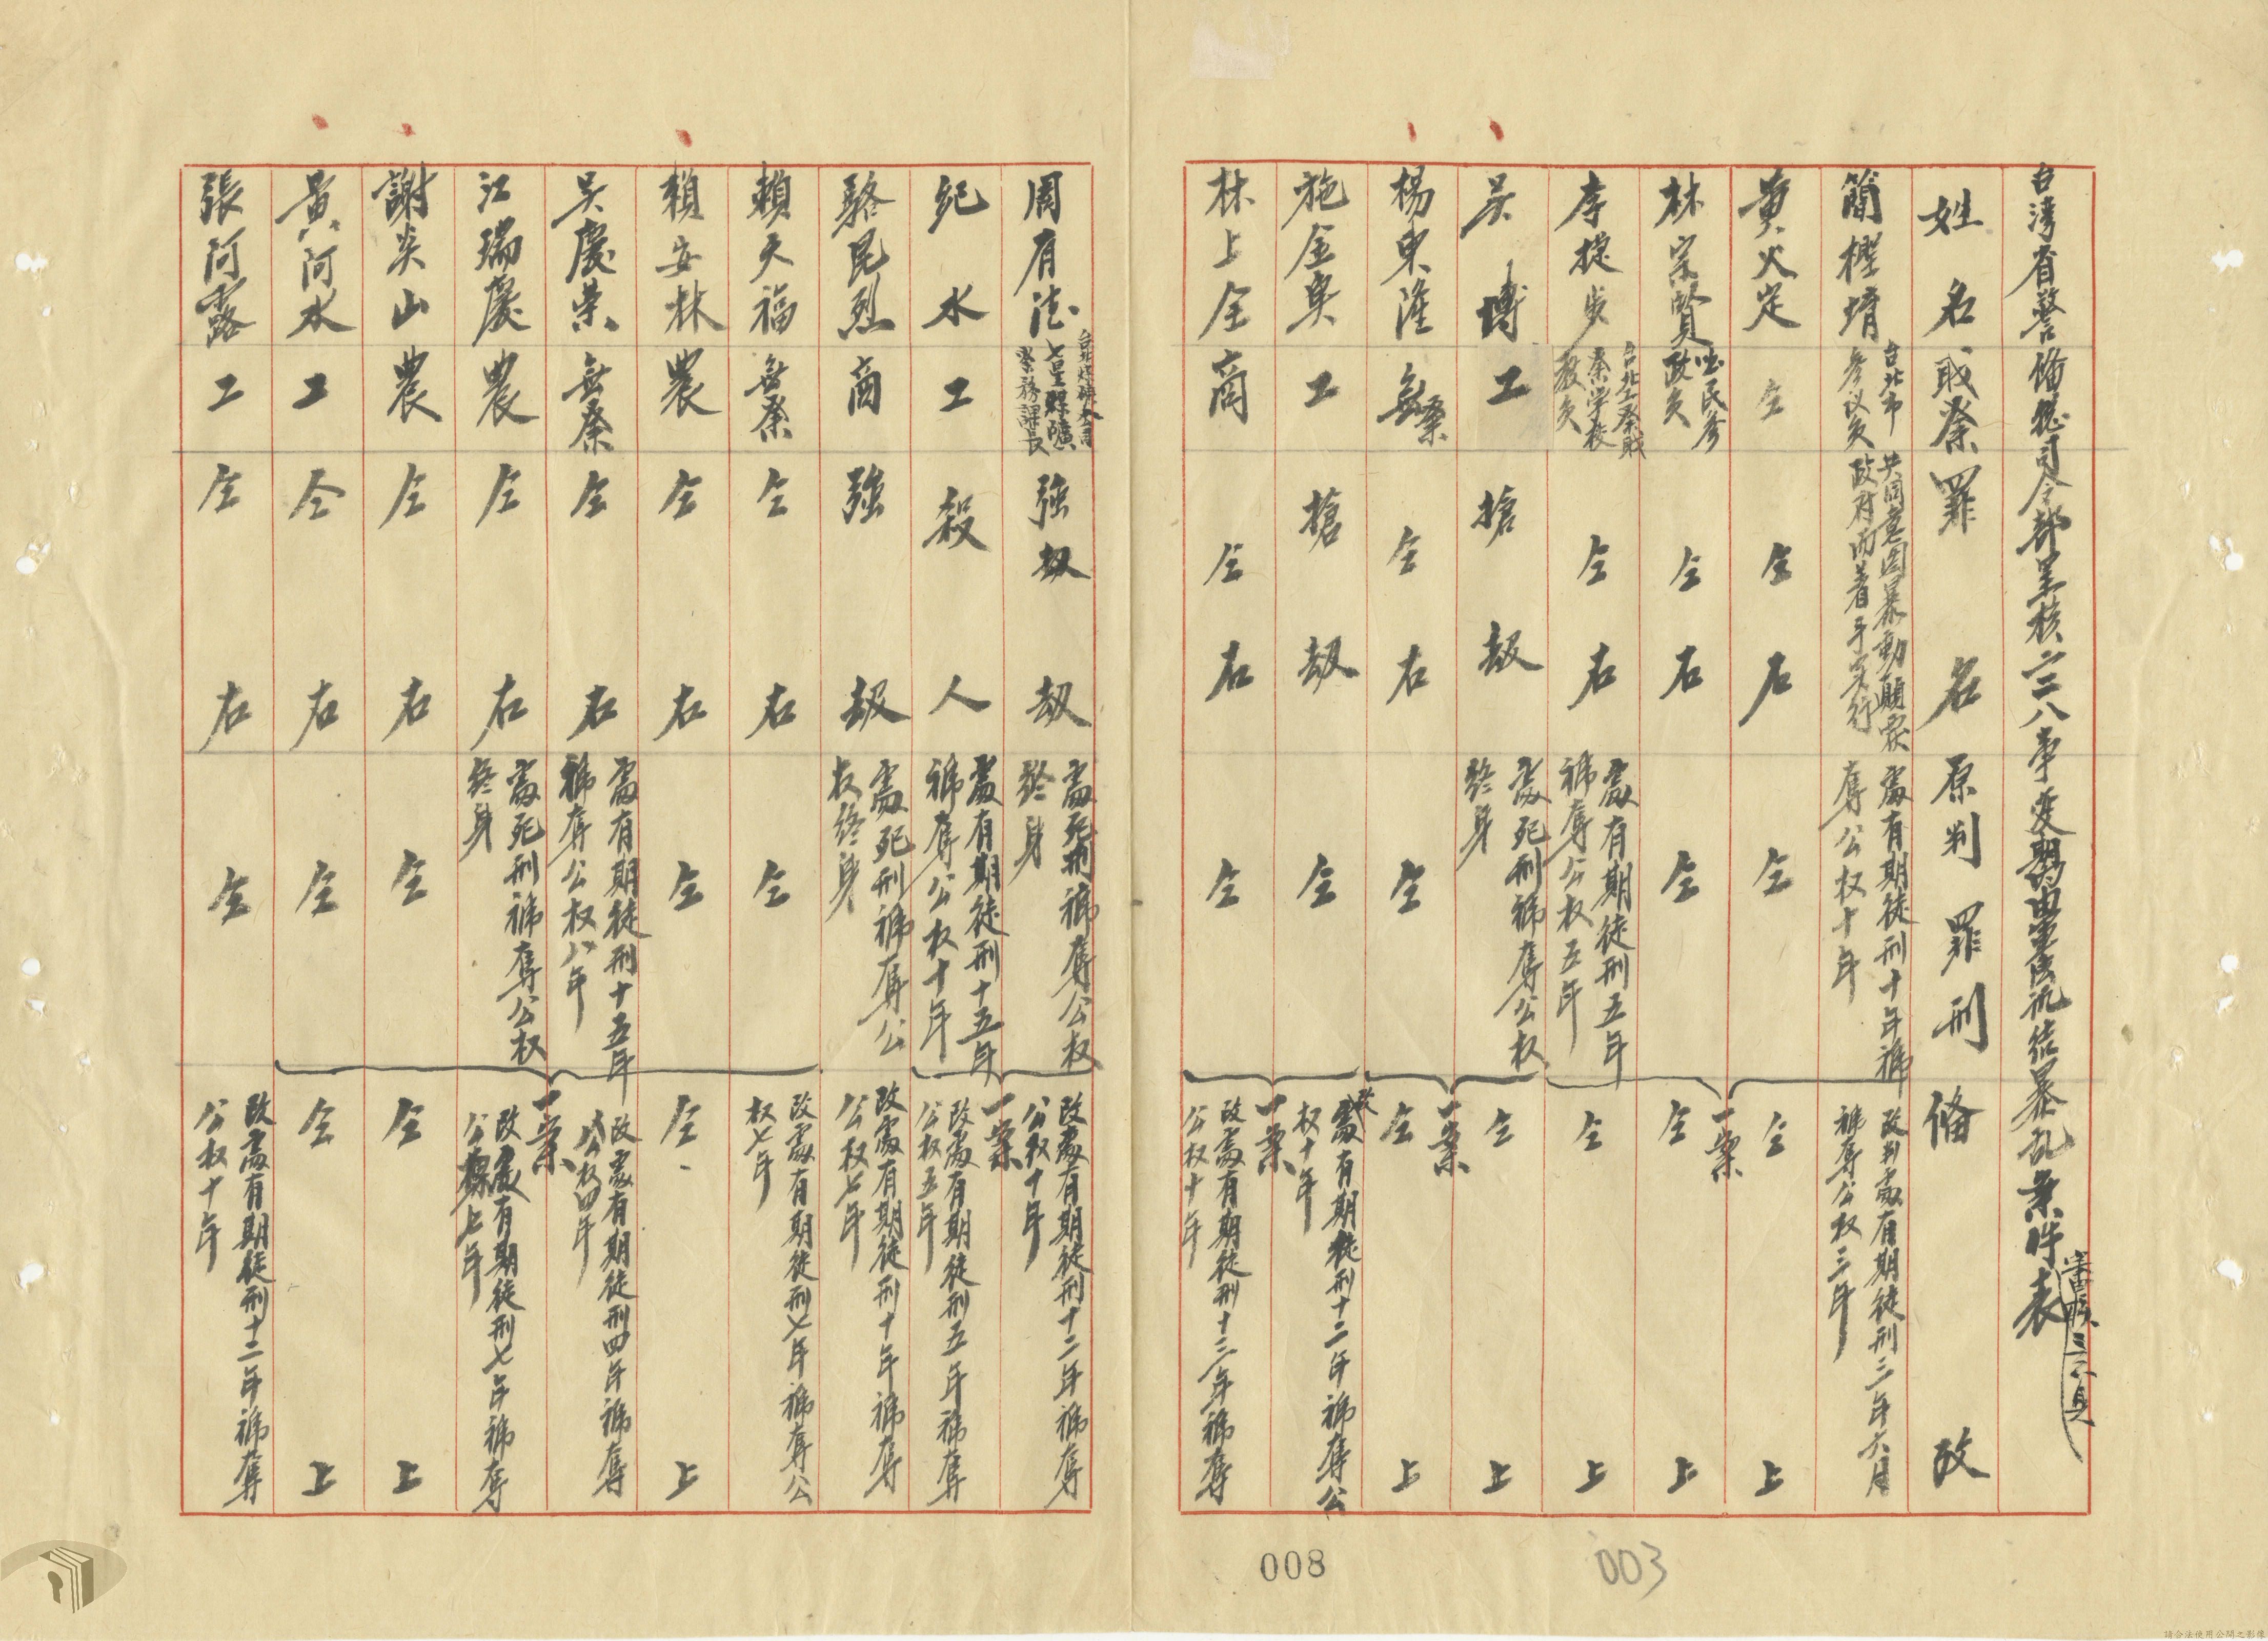 台灣省警備總司令部呈核二二八事變期內由軍法訊結暴亂案件表
姓名 職業 罪名 原判罪刑 備攷
簡檉堉 台北市參议員 共同意图暴動顛覆政府而着手实行 處有期徒刑十年褫奪公权十年 改判處有期徒刑三年六月褫奪公权三年
黄火定 仝 仝右 仝 仝上
一案
林宗賢 國民參政員 仝右 仝 仝上
李捷步 台北工業職業学校教員 仝右 處有期徒刑五年褫奪公权五年 仝上
吴博 工 搶刼 處死刑褫奪公权終身 仝上
一案
楊東隆 無業 仝右 仝 仝上
施金輿 工 搶刼 仝 改處有期徒刑十二年褫奪公权十年
一案
林上全 商 仝右 仝 改處有期徒刑十二年褫奪公权十年
周有德 七星縣礦業務課長 強刼 處死刑褫奪公权終身 改處有期徒刑十二年褫奪公权十年
一案
紀水 工 殺人 處有期徒刑十五年褫奪公权十年 改處有期徒刑五年褫奪公权五年
駱昆烈 商 強刼 處死刑褫奪公权終身 改處有期徒刑十年褫奪公权七年
賴天福 無業 仝右 仝 改處有期徒刑七年褫奪公权七年
賴安林 農 仝右 仝 仝上
吴慶荣 無業 仝右 處有期徒刑十五年褫奪公权八年 改處有期徒刑四年褫奪公权四年
一案
江瑞慶 農 仝右 處死刑褫奪公权終身 改處有期徒刑七年褫奪公权七年
謝炎山 農 仝右 仝 仝上
黄阿水 工 仝右 仝 仝上
張阿露 工 仝右 仝 改處有期徒刑十二年褫奪公权十年
008
003
請合法使用公開之影像